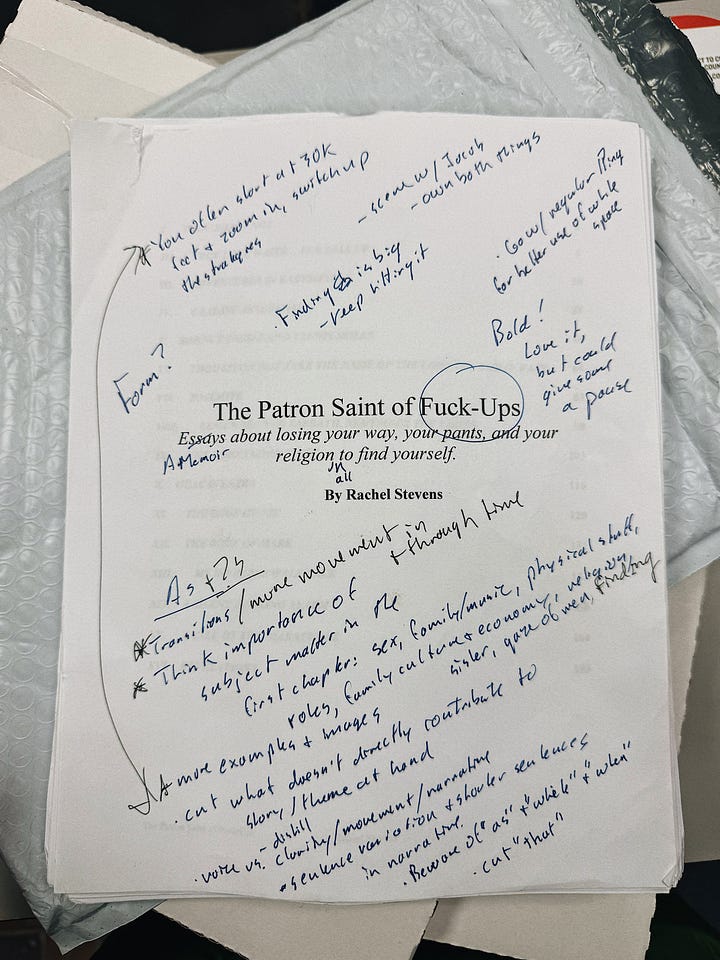 *You often start at 30K
feet & zoom in, switch up
the strategies
- scene w/ Jacob
- own both things
. Finding is big
- keep hitting it
. Go w/ regular
for better use of white
space
Bold!
Love it,
but could
give some
a pause
Form?
The Patron Saint of Fuck-Ups
Essays about losing your way, your pants, and your
religion to find yourself.
A Memoir
all
By Rachel Stevens
As + ?s
* Transitions/more movement in
+ through time
* Think importance of
subject matter in the
first chapter: sex, family/music, physical stuff,
roles, family culture & economy, religion,
sister, gaze of men, finding
* more examples & images
. cut what doesn't directly contribute to
story/theme at hand
- distill
. voice vs. clarity/movement/narrative
. sentence variation & shorter sentences
in narrative.
. Beware of "as" & "while" & "when"
. cut "that"